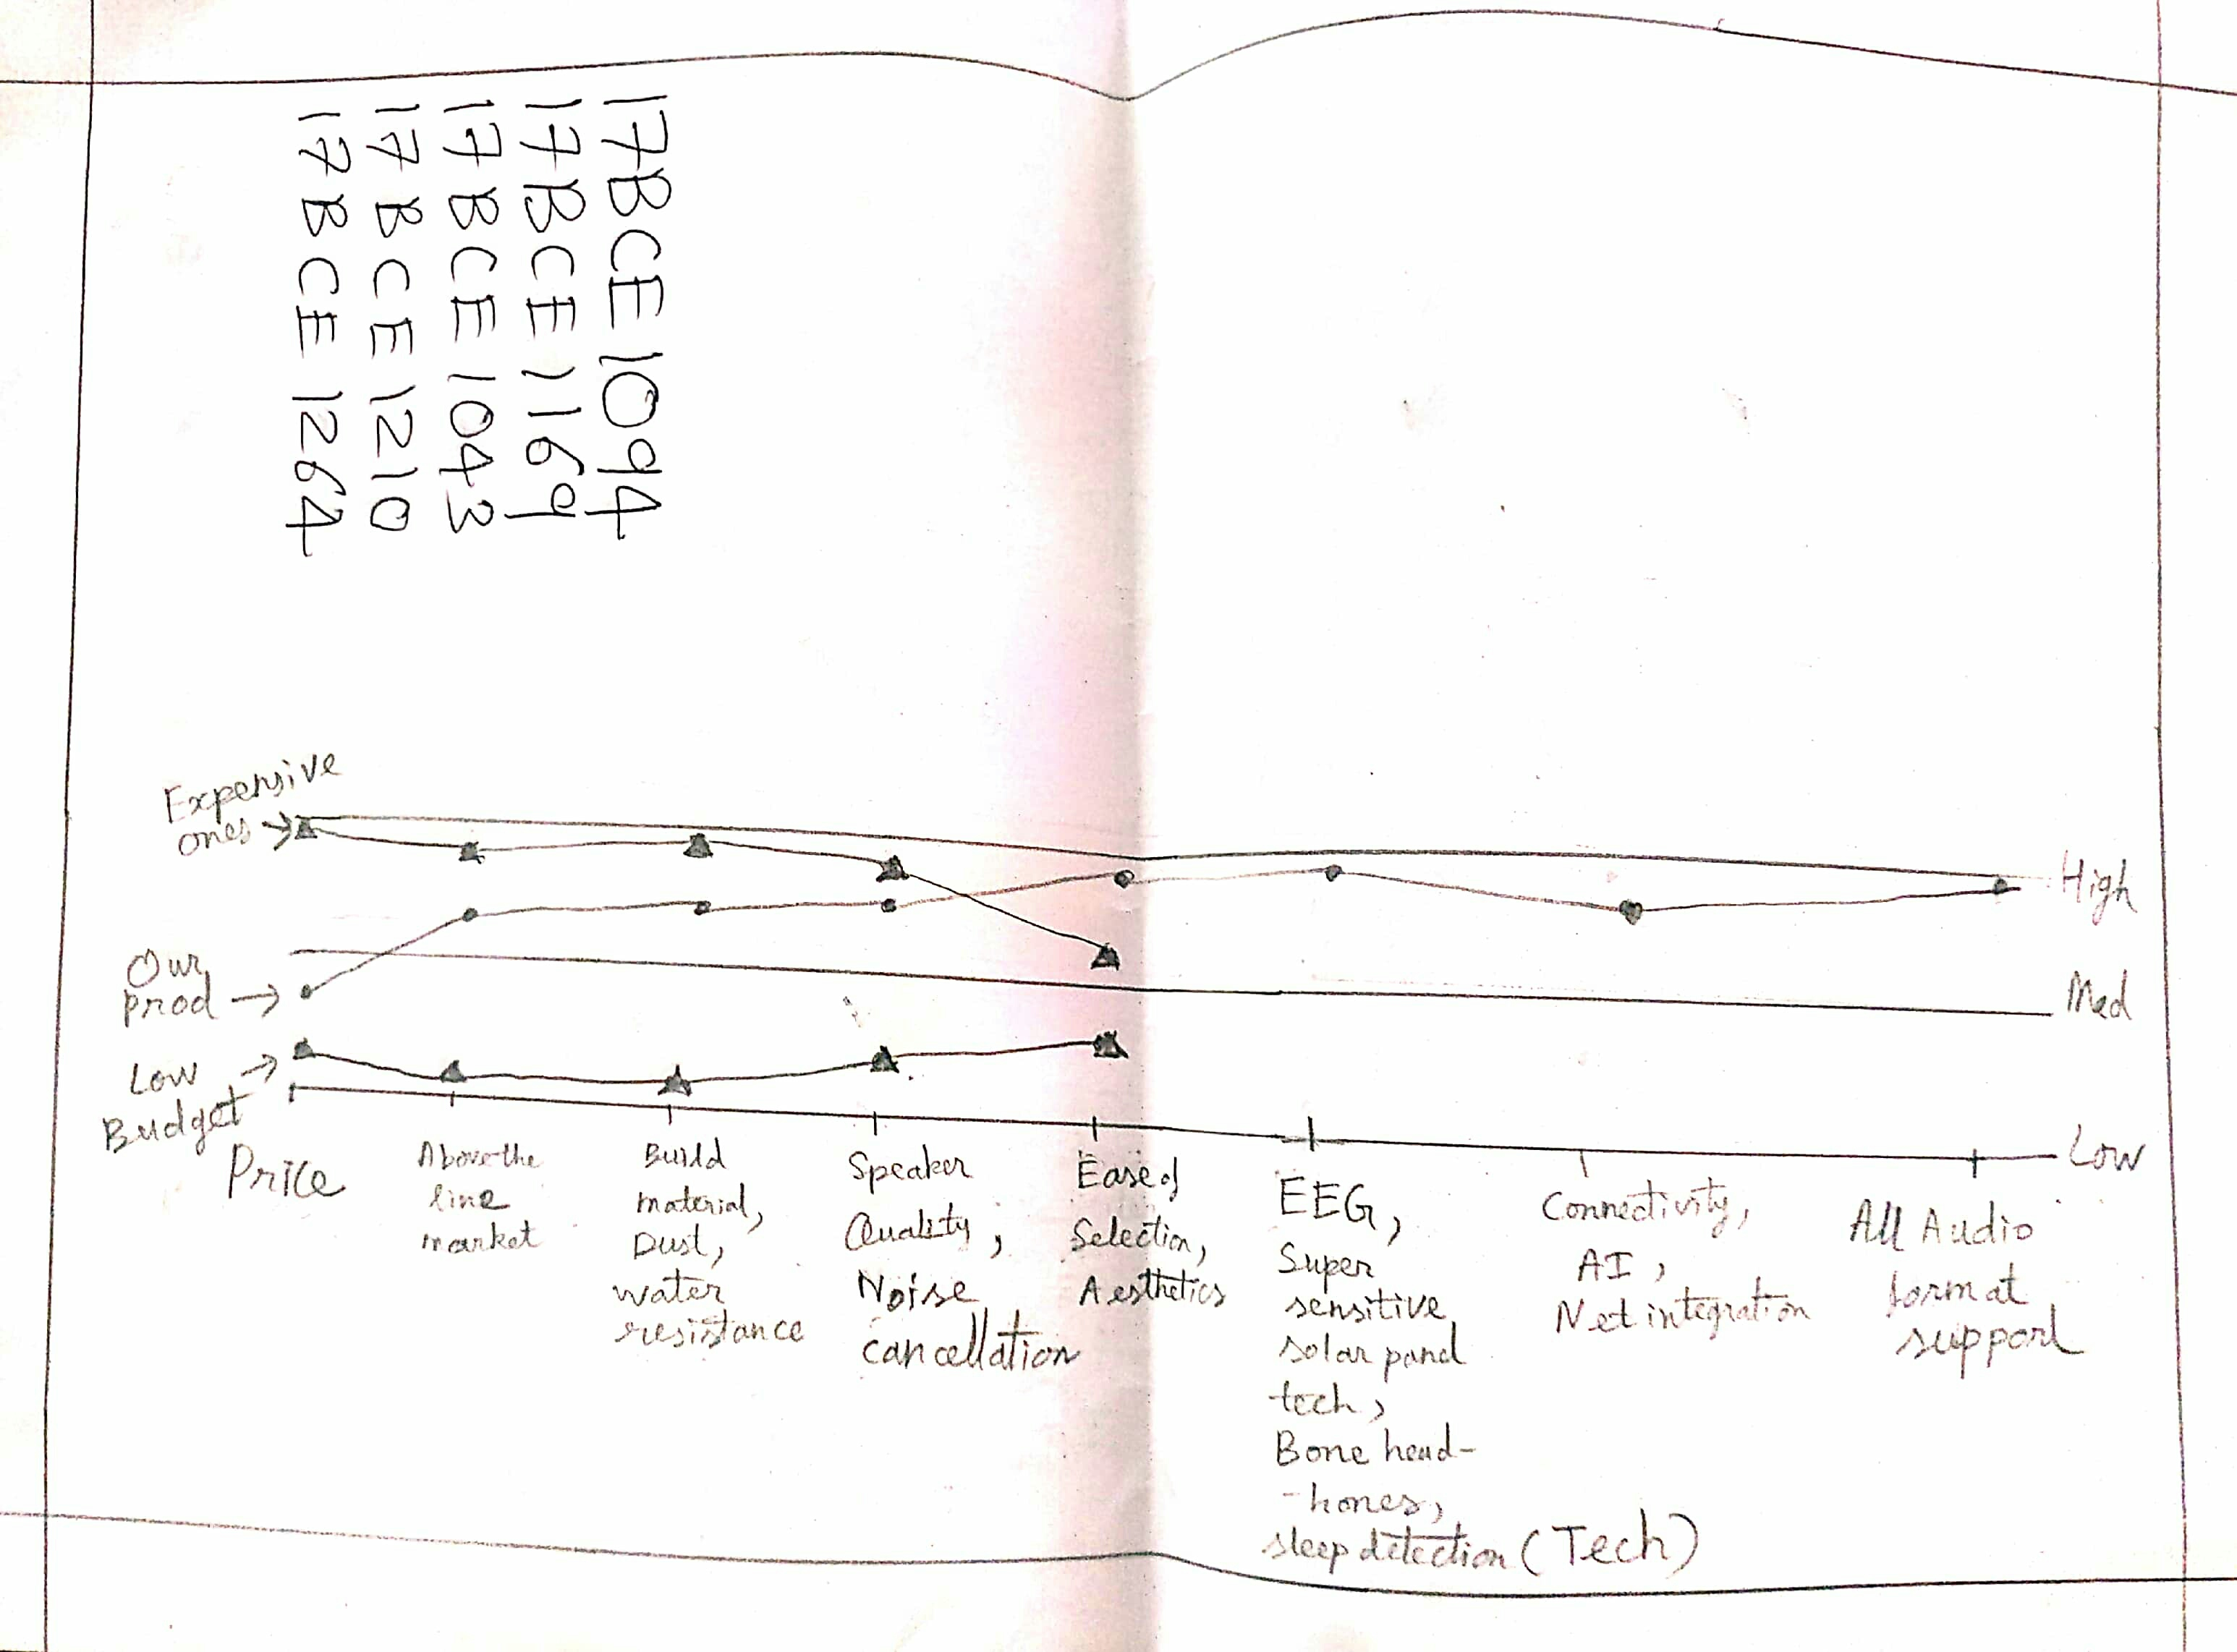 17BCE1094
17BCE1169
17BCE1043
17BCE1210
17BCE1264
Expensive
ones →
Our
prod →
Low →
Budget
High
Med
Low
Price
Above the
line
market
Build
material,
Dust,
water
resistance
Speaker
Quality,
Noise
cancellation
Ease of
Selection,
Aesthetics
EEG,
Super
sensitive
solar panel
tech,
Bone head-
-hones,
sleep detection (Tech)
Connectivity,
AI,
Net integration
All Audio
format
support